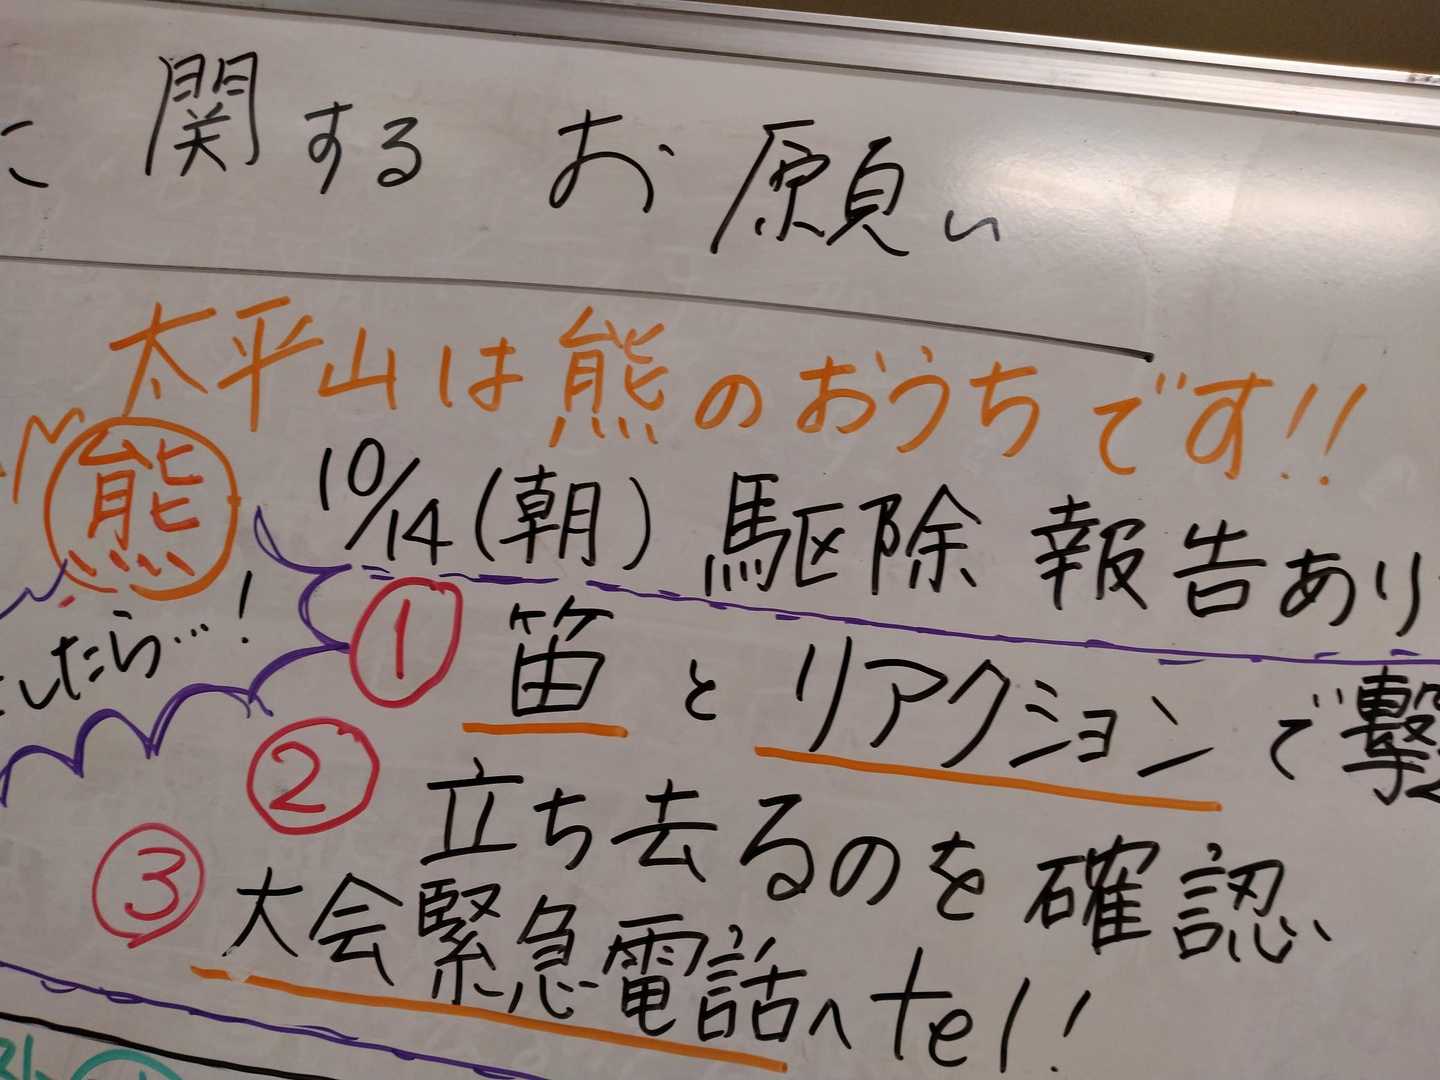 に関するお願い
太平山は熊のおうちです!!
熊
10/14(朝)駆除報告あり
したら…!
① 笛とリアクションで撃
② 立ち去るのを確認
③ 大会緊急電話へtel!